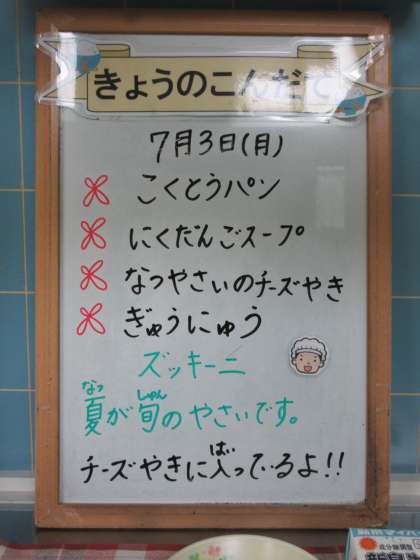 きょうのこんだて
7月3日(月)
こくとうパン
にくだんごスープ
なつやさいのチーズやき
ぎゅうにゅう
ズッキーニ
夏が旬のやさいです。
チーズやきに入っているよ!!